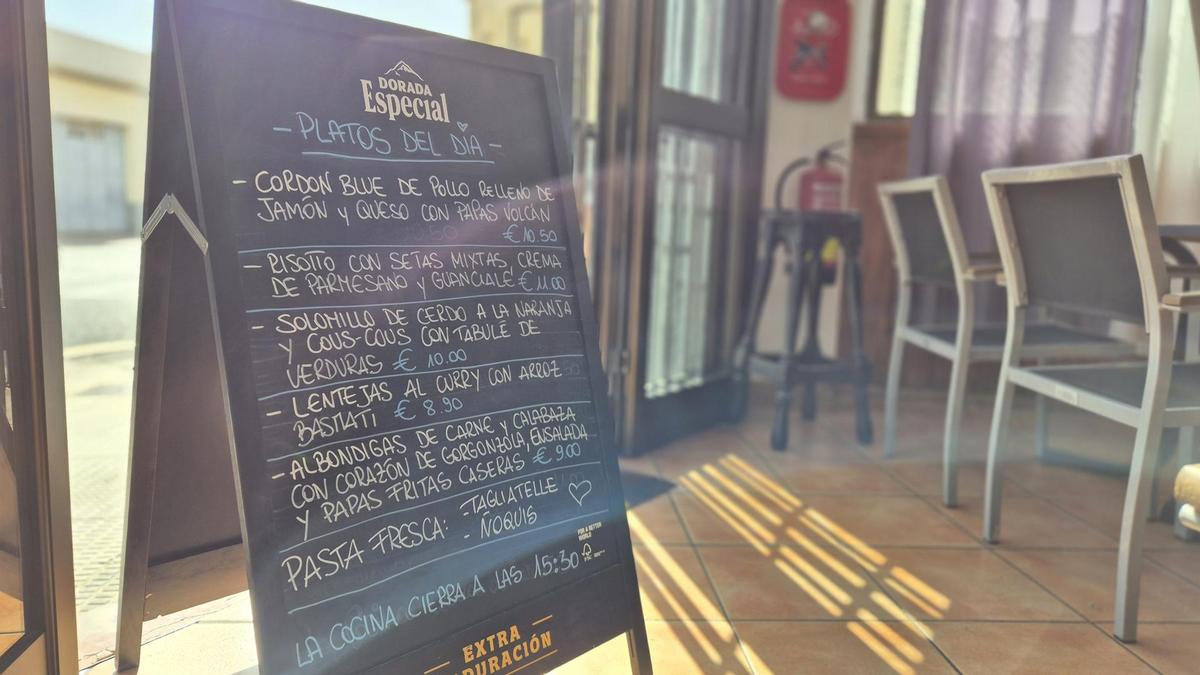 DORADA
Especial
- PLATOS DEL DÍA -
- CORDON BLUE DE POLLO RELLENO DE
JAMÓN Y QUESO CON PAPAS VOLCÁN
€ 10.50
- RISOTTO CON SETAS MIXTAS CREMA
DE PARMESANO Y GUANCIALE € 11.00
- SOLOMILLO DE CERDO A LA NARANJA
Y COUS-COUS CON TABULÉ DE
VERDURAS € 10.00
- LENTEJAS AL CURRY CON ARROZ
BASMATI € 8.90
- ALBONDIGAS DE CARNE Y CALABAZA
CON CORAZÓN DE GORGONZOLA, ENSALADA
Y PAPAS FRITAS CASERAS € 9.00
PASTA FRESCA: - TAGLIATELLE
- ÑOQUIS
FOR A BETTER
WORLD
FSC
LA COCINA CIERRA A LAS 15:30
EXTRA
DURACIÓN